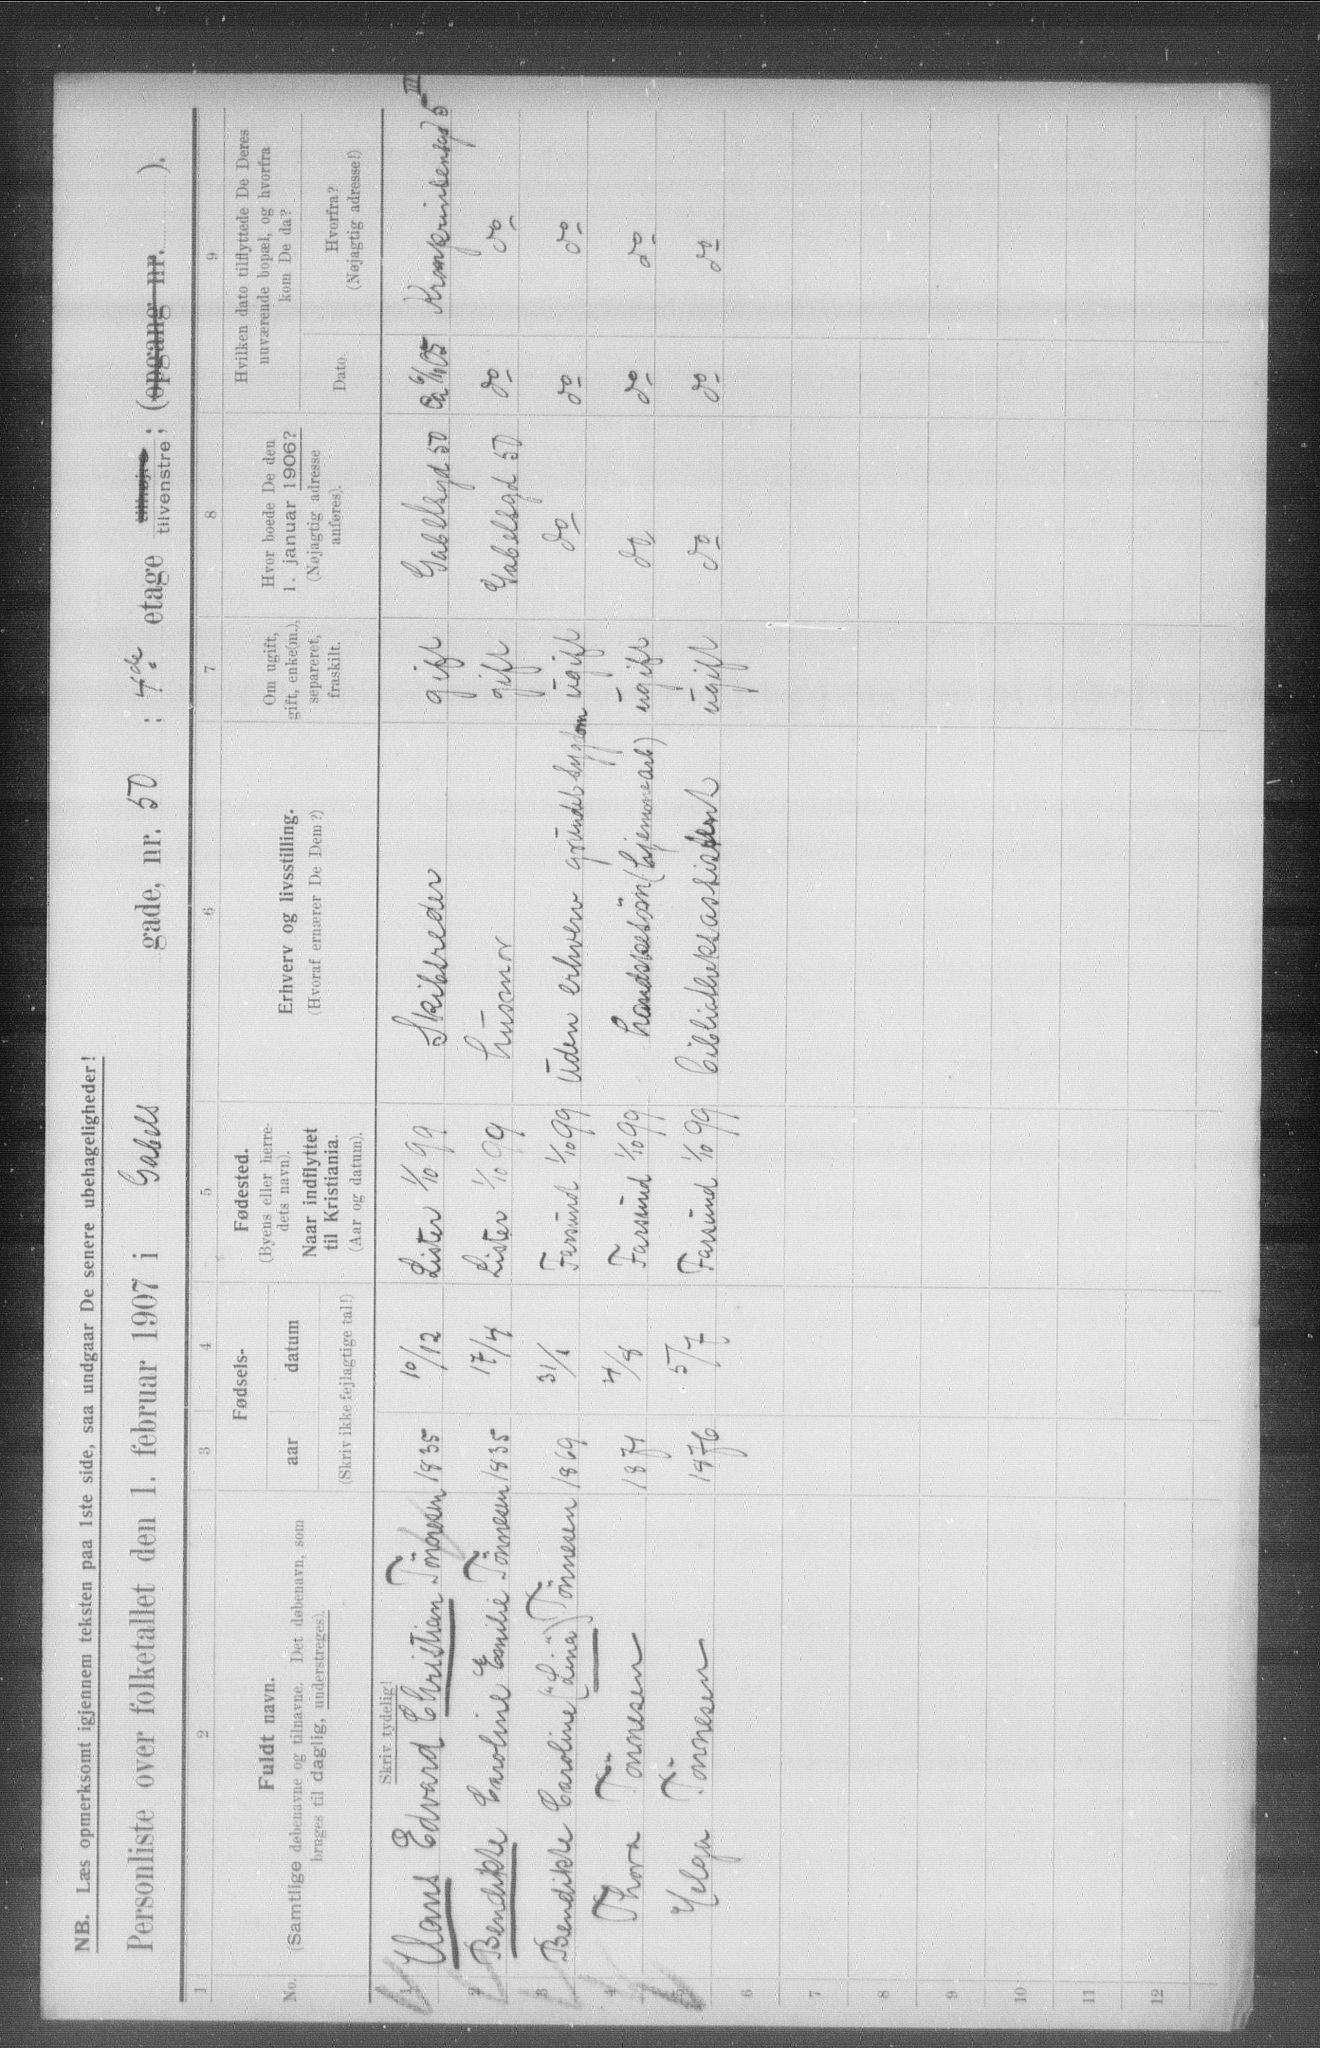 NB. Læs opmerksomt igjennem teksten paa 1ste side, saa undgaar De senere ubehageligheder!
Personliste over folketallet den 1. februar 1907 i Gabels gade, nr. 50 ; 4de etage tilhøjre tilvenstre ; (opgang nr. ).
1 2 3 4 5 6 7 8 9
No.
Fuldt navn.
(Samtlige døbenavne og tilnavne. Det døbenavn, som
bruges til daglig, understreges).
Fødsels-
aar datum
(Skriv ikke fejlagtige tal!)
Fødested.
(Byens eller herre-
dets navn).
Naar indflyttet
til Kristiania.
(Aar og datum).
Erhverv og livsstilling.
(Hvoraf ernærer De Dem?)
Om ugift,
gift, enke(m.),
separeret,
fraskilt.
Hvor boede De den
1. januar 1906?
(Nøjagtig adresse
anføres).
Hvilken dato tilflyttede De Deres
nuværende bopæl, og hvorfra
kom De da?
Dato.
Hvorfra?
(Nøjagtig adresse!)
Skriv tydelig!
1 Hans Edvard Christian Tönnesen 1835 10/12 Lister 1/10 99 Skibsreder gift Gabelsgd 50 Kronprinsensgd 5 III
2 Bendikte Caroline Emilie Tönnesen 1835 17/4 Lister 1/10 99 husmor gift Gabelsgd 50 do do
3 Bendikte Caroline ("Lina") Tönnesen 1869 31/1 Farsund 1/10 99 uden erhverv grundet sygdom ugift do do do
4 Thora Tönnesen 1871 4/8 Farsund 1/10 99 handskesöm (hjemmearb) ugift do do do
5 Helga Tönnesen 1876 5/7 Farsund 1/10 99 bibliotheksassistent ugift do do do
6
7
8
9
10
11
12